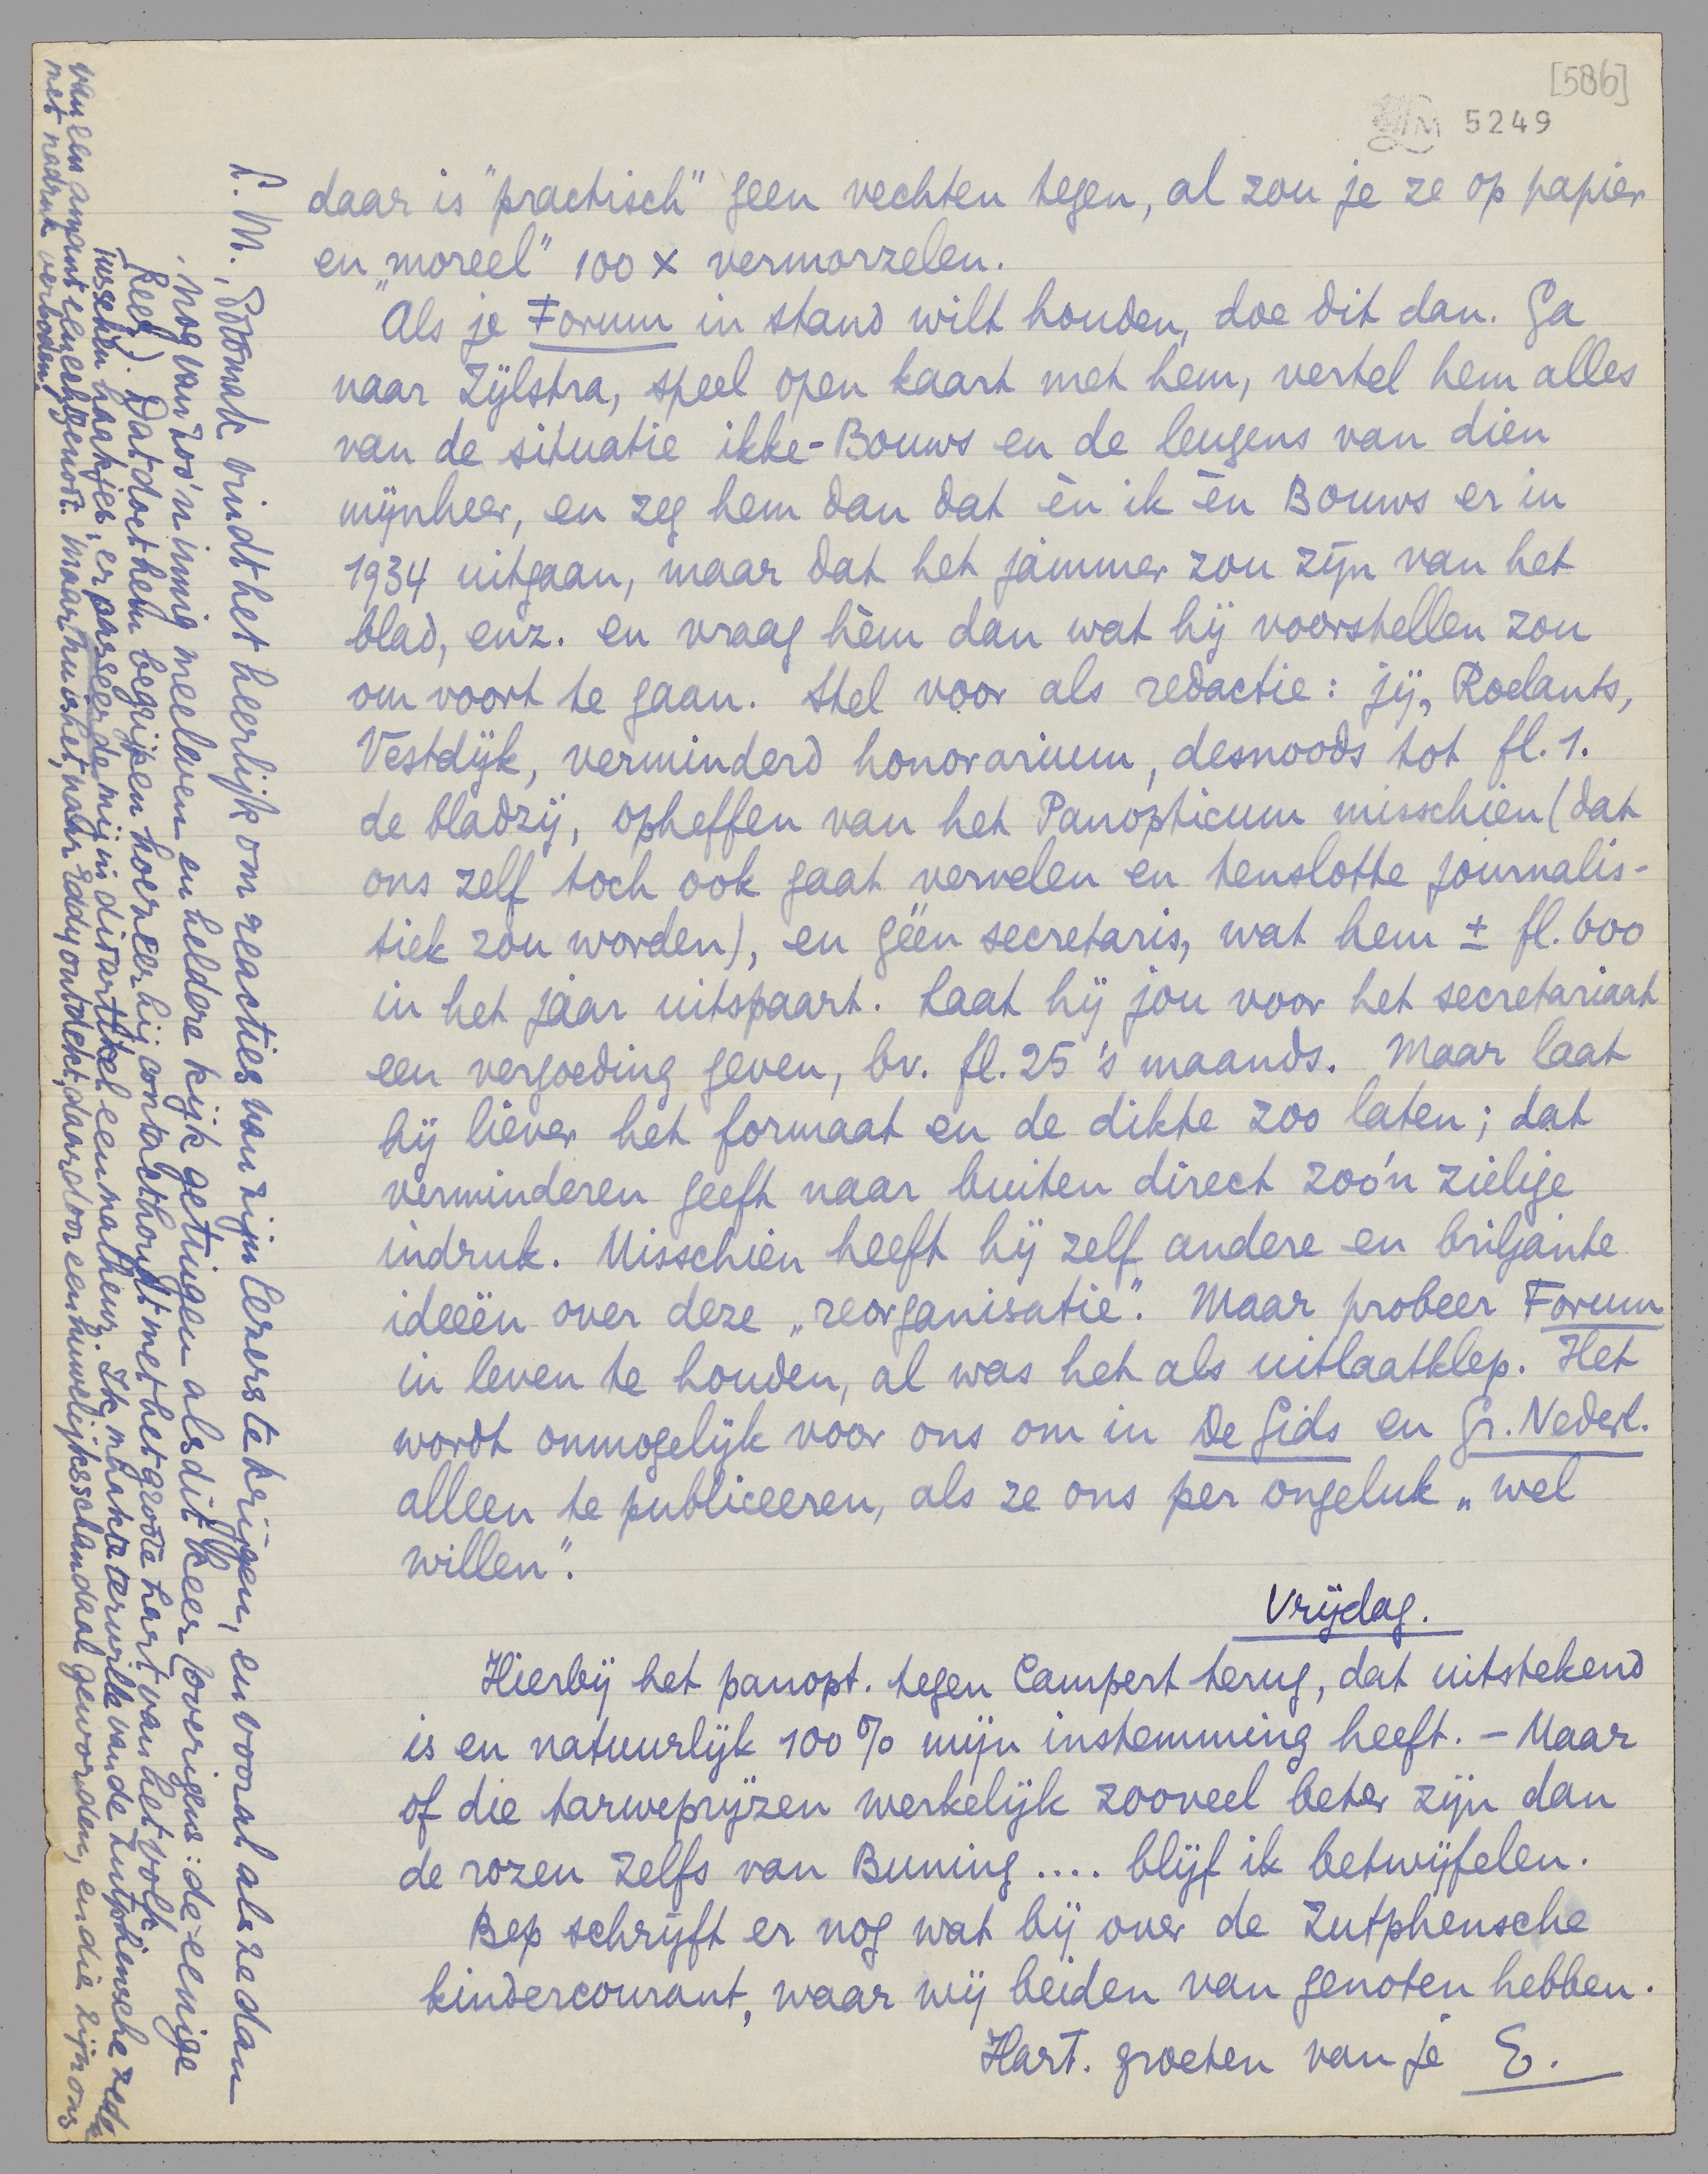 [586]
LM 5249
daar is "practisch" geen vechten tegen, al zou je ze op papier
en „moreel" 100 x vermorzelen.
Als je Forum in stand wilt houden, doe dit dan. Ga
naar Zijlstra, speel open kaart met hem, vertel hem alles
van de situatie ikke-Bouws en de leugens van dien
mijnheer, en zeg hem dan dat èn ik èn Bouws er in
1934 uitgaan, maar dat het jammer zou zijn van het
blad, enz. en vraag hèm dan wat hij voorstellen zou
om voort te gaan. Stel voor als redactie: jij, Roelants,
Vestdijk, verminderd honorarium, desnoods tot fl. 1.
de bladzij, opheffen van het Panopticum misschien (dat
ons zelf toch ook gaat vervelen en tenslotte journalis-
tiek zou worden), en géén secretaris, wat hem ± fl. 600
in het jaar uitspaart. Laat hij jou voor het secretariaat
een vergoeding geven, bv. fl. 25 's maands. Maar laat
hij liever het formaat en de dikte zoo laten; dat
verminderen geeft naar buiten direct zoo'n zielige
indruk. Misschien heeft hij zelf andere en briljante
ideeën over deze „reorganisatie". Maar probeer Forum
in leven te houden, al was het als uitlaatklep. Het
wordt onmogelijk voor ons om in De Gids en Gr. Nederl.
alleen te publiceeren, als ze ons per ongeluk „wel
willen".
Vrijdag.
Hierbij het panopt. tegen Campert terug, dat uitstekend
is en natuurlijk 100% mijn instemming heeft. – Maar
of die tarweprijzen werkelijk zooveel beter zijn dan
de rozen zelfs van Buning .... blijf ik betwijfelen.
Bep schrijft er nog wat bij over de Zutphensche
kindercourant, waar wij beiden van genoten hebben.
Hart. groeten van je E.
L. M., Potomak vindt het heerlijk om reacties van zijn lezers te krijgen, en vooral als ze dan
nog van zoo'n innig meeleven en heldere kijk getuigen als dit keer (overigens: de eenige
keer). Dat doet hem begrijpen hoezeer hij contact houdt met het groote hart van het volk.
Tusschen haakjes, er passeerde mij in dit artikel een malheur. Ik maakte terwille van de Zutphensche zeden
van een amant een echtgenoot. maar nu is het, naar Eddy ontdekt, daardoor een huwelijksschandaal geworden, en die zijn ons
met nadruk verboden!